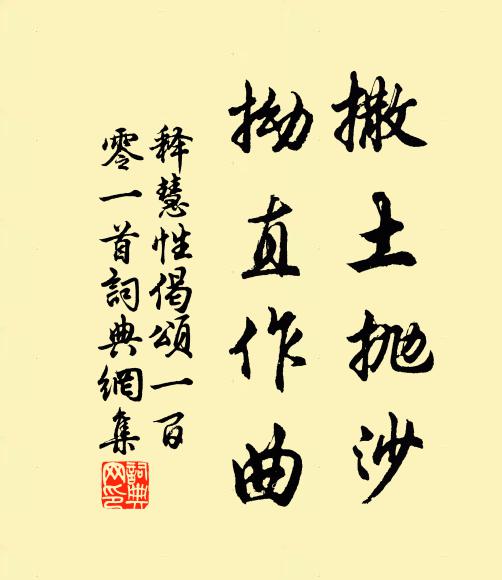 撒土抛沙
拗直作曲
释慧性偈頌一百
零一首詞典網集
詞典网印